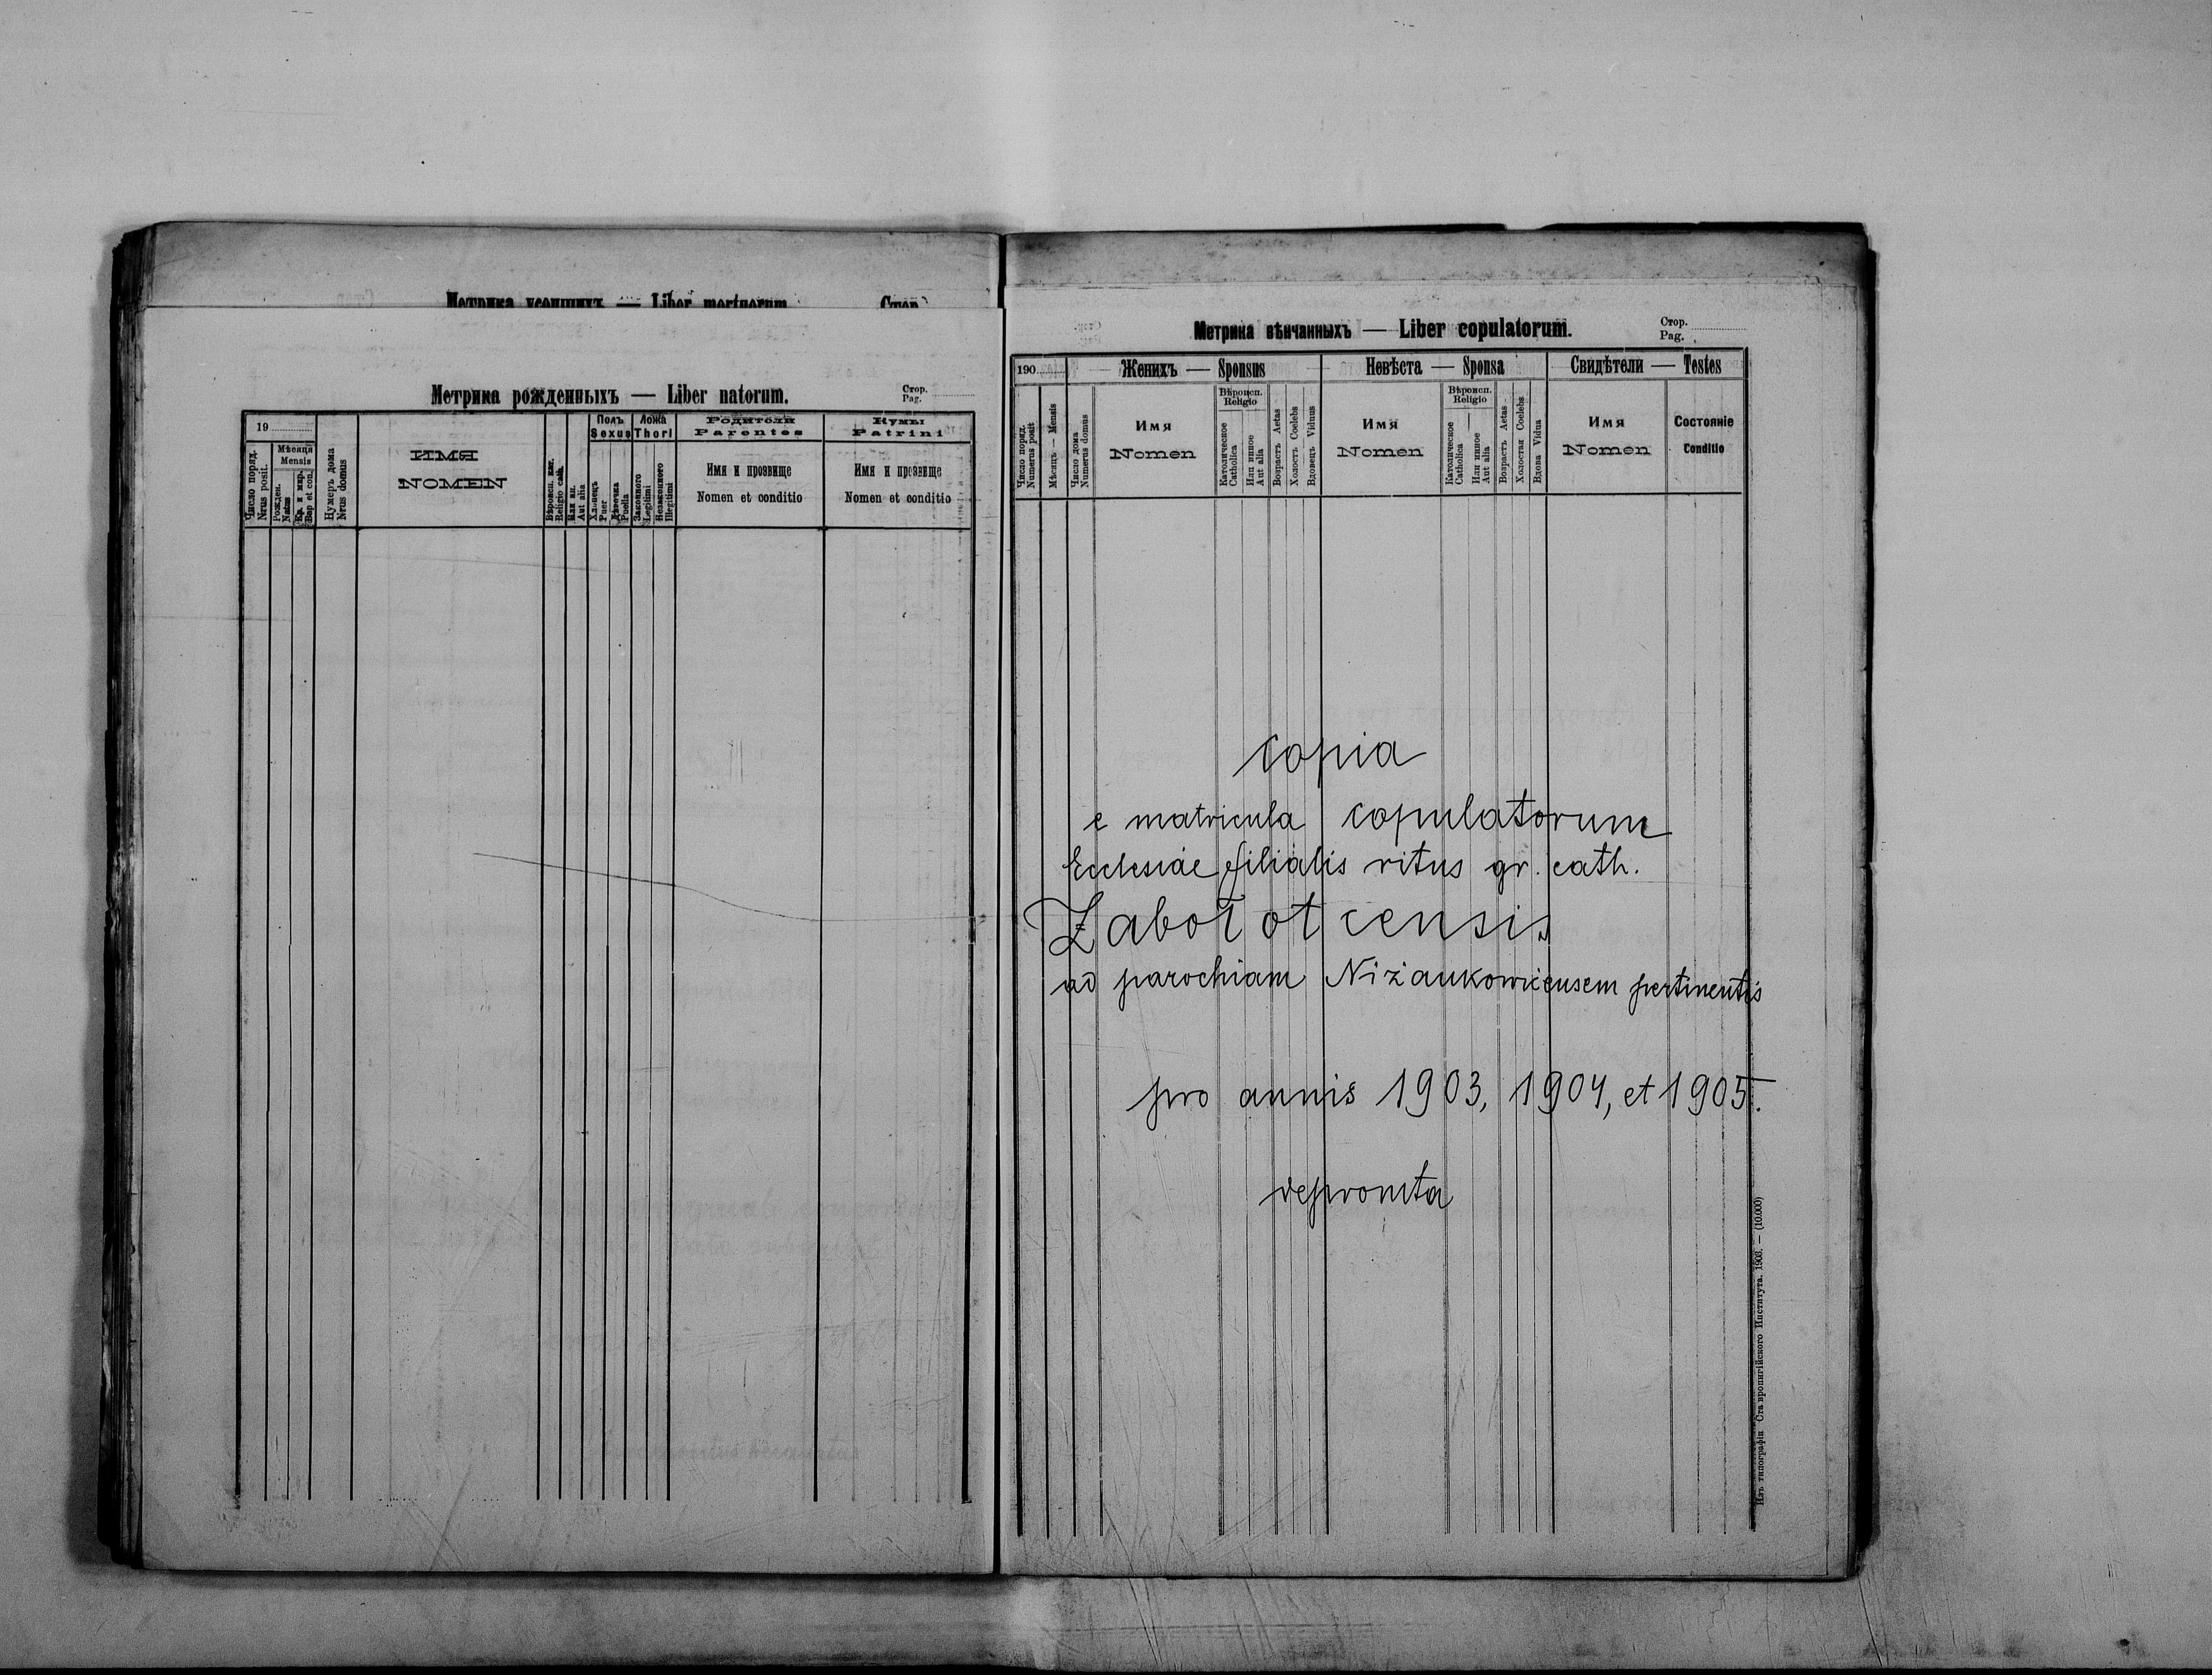 Метрика усопшихъ — Liber mortuorum. Стор.
Метрика рожденныхъ — Liber natorum.
Стор.
Pag.
19
Число поряд.
Nrus posit.
Мѣсяця
Mensis
Рожден.
Natus
Кр. и мир.
Bap et con.
Нумеръ дома
Nrus domus
ИМЯ
NOMEN
Вѣроисп. кае.
Religio cath.
Или ин.
Aut alia
Полъ
Sexus
Хлопець
Puer
Дѣвочка
Puella
Ложа
Thori
Законного
Legitimi
Незаконного
Illegitimi
Родители
Parentes
Имя и прозвище
Nomen et conditio
Кумы
Patrini
Имя и прозвище
Nomen et conditio
Метрика вѣнчанныхъ — Liber copulatorum.
Стор.
Pag.
190
Число поряд.
Numerus posit
Мѣсяць — Mensis
Число дома
Numerus domus
Женихъ — Sponsus
Имя
Nomen
Вѣроисп.
Religio
Католическое
Catholica
Или инное
Aut alia
Возрастъ Aetas
Холостъ Coelebs
Вдовецъ Viduus
Невѣста — Sponsa
Имя
Nomen
Вѣроисп.
Religio
Католическое
Catholica
Или инное
Aut alia
Возрастъ Aetas
Холостая Coelebs
Вдова Vidua
Свидѣтели — Testes
Имя
Nomen
Состояніе
Conditio
Copia
e matricula copulatorum
Ecclesiae filialis ritus gr. cath.
Zabołotcensis
ad parochiam Niżankowicensem pertinentis
pro annis 1903, 1904, et 1905.
depromta
Изъ типографіи Ставропигійского Института. 1903. — (10.000)